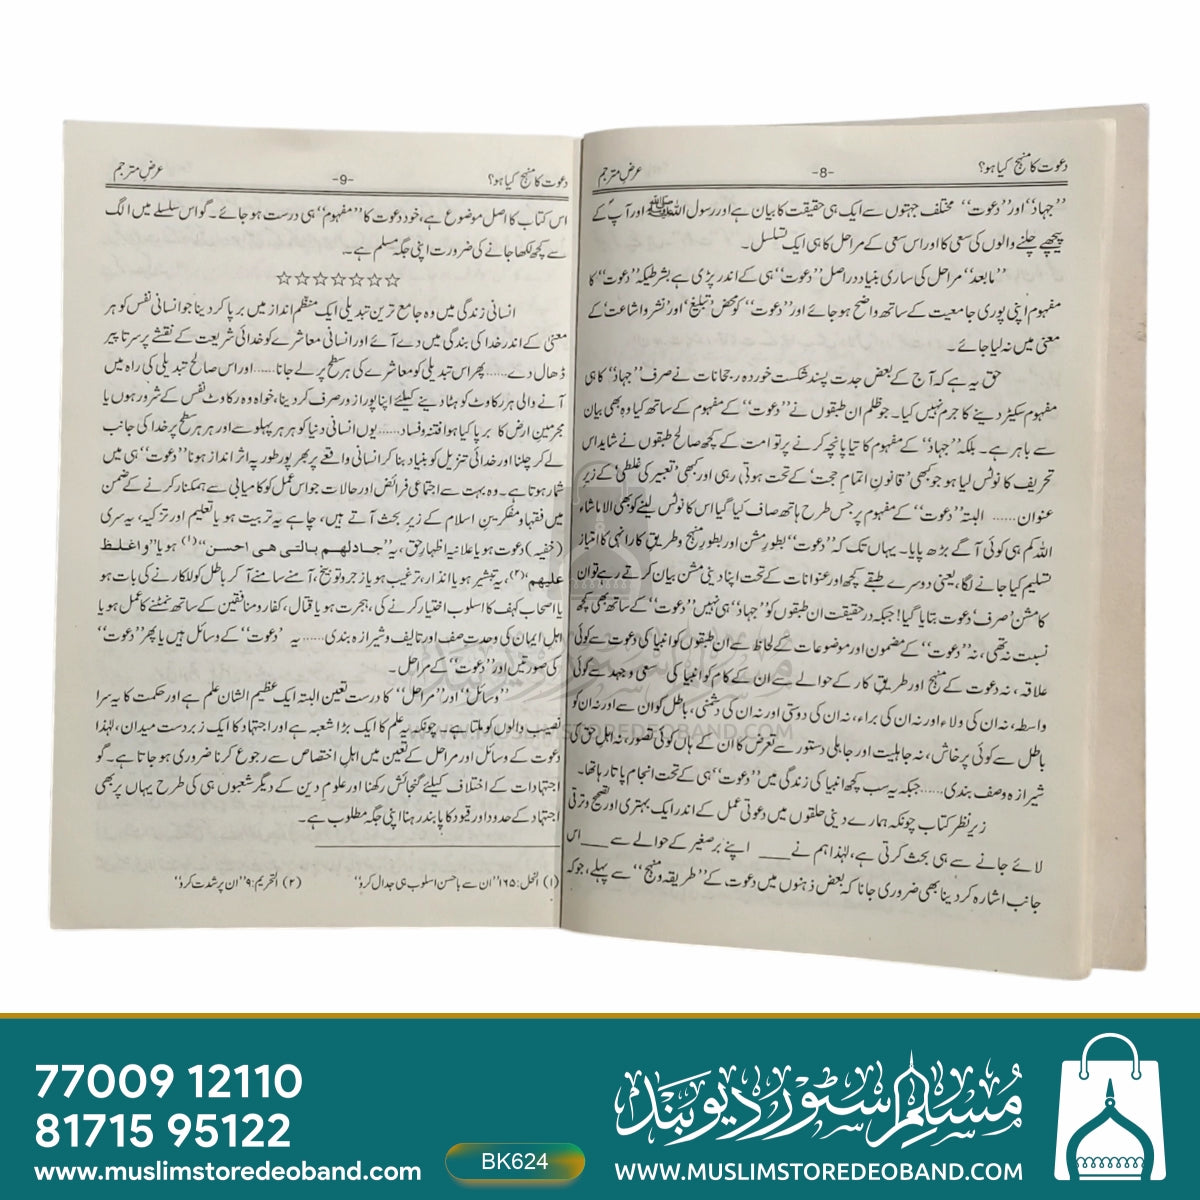 دعوت کا منہج کیا ہو؟ -8- عرضِ مترجم
”جہاد“ اور ”دعوت“ مختلف جہتوں سے ایک ہی حقیقت کا بیان ہے اور رسول اللہ ﷺ اور آپ کے
پیچھے چلنے والوں کی سعی کا اور اس سعی کے مراحل کا ہی ایک تسلسل۔
”مابعد“ مراحل کی ساری بنیاد دراصل ”دعوت“ ہی کے اندر پڑی ہے بشرطیکہ ”دعوت“ کا
مفہوم اپنی پوری جامعیت کے ساتھ واضح ہو جائے اور ”دعوت“ کو محض ’تبلیغ‘ اور ’نشر و اشاعت‘ کے
معنی میں نہ لیا جائے۔
حق یہ ہے کہ آج کے بعض جدت پسند شکست خوردہ رجحانات نے صرف ”جہاد“ کا ہی
مفہوم سکیڑ دینے کا جرم نہیں کیا۔ جو ظلم ان طبقوں نے ”دعوت“ کے مفہوم کے ساتھ کیا وہ بھی بیان
سے باہر ہے۔ بلکہ ”جہاد“ کے مفہوم کا تیا پانچہ کرنے پر تو امت کے کچھ صالح طبقوں نے شاید اس
تحریف کا نوٹس لیا ہو جو کبھی ’قانونِ اتمامِ حجت‘ کے تحت ہوتی رہی اور کبھی ’تعبیر کی غلطی‘ کے زیرِ
عنوان...... البتہ ”دعوت“ کے مفہوم پر جس طرح ہاتھ صاف کیا گیا اس کا نوٹس لینے کو بھی الا ماشاء
اللہ کم ہی کوئی آگے بڑھ پایا۔ یہاں تک کہ ”دعوت“ بطورِ مشن اور بطورِ منہج و طریقِ کار انہی کا امتیاز
تسلیم کیا جانے لگا، یعنی دوسرے طبقے کچھ اور عنوانات کے تحت اپنا دینی مشن بیان کرتے رہے تو ان
کا مشن ’صرف‘ دعوت بتایا گیا! جبکہ در حقیقت ان طبقوں کو ”جہاد“ ہی نہیں ”دعوت“ کے ساتھ بھی کچھ
نسبت نہ تھی، نہ ”دعوت“ کے مضمون اور موضوعات کے لحاظ سے ان طبقوں کو انبیا کی دعوت سے کوئی
علاقہ، نہ دعوت کے منہج اور طریقِ کار کے حوالے سے ان کے کام کو انبیا کی سعی و جہد سے کوئی
واسطہ، نہ ان کی ولاء اور نہ ان کی براء، نہ ان کی دوستی اور نہ ان کی دشمنی، باطل کو ان سے اور نہ ان کو
باطل سے کوئی پرخاش، نہ جاہلیت اور جاہلی دستور سے تعرض کا ان کے ہاں کوئی تصور، نہ اہلِ حق کی
شیرازہ و صف بندی...... جبکہ یہ سب کچھ انبیا کی زندگی میں ”دعوت“ ہی کے تحت انجام پاتا رہا تھا۔
زیر نظر کتاب چونکہ ہمارے دینی حلقوں میں دعوتی عمل کے اندر ایک بہتری اور تصحیح و ترقی
لائے جانے سے ہی بحث کرتی ہے، لہٰذا ہم نے ___ اپنے برصغیر کے حوالے سے ___ اس
جانب اشارہ کر دینا بھی ضروری جانا کہ بعض ذہنوں میں دعوت کے ”طریقہ و منہج“ سے پہلے، جو کہ
دعوت کا منہج کیا ہو؟ -9- عرضِ مترجم
اس کتاب کا اصل موضوع ہے، خود دعوت کا ”مفہوم“ ہی درست ہو جائے۔ گو اس سلسلے میں الگ
سے کچھ لکھا جانے کی ضرورت اپنی جگہ مسلم ہے۔
☆☆☆☆☆☆☆
انسانی زندگی میں وہ جامع ترین تبدیلی ایک منظم انداز میں برپا کر دینا جو انسانی نفس کو ہر
معنیٰ کے اندر خدا کی بندگی میں دے آئے اور انسانی معاشرے کو خدائی شریعت کے نقشے پر سر تا پیر
ڈھال دے...... پھر اس تبدیلی کو معاشرے کی ہر سطح پر لے جانا...... اور اس صالح تبدیلی کی راہ میں
آنے والی ہر رکاوٹ کو ہٹا دینے کیلئے اپنا پورا زور صرف کر دینا، خواہ وہ رکاوٹ نفس کے شرور ہوں یا
مجرمینِ ارض کا برپا کیا ہوا فتنہ و فساد...... یوں انسانی دنیا کو ہر ہر پہلو سے اور ہر ہر سطح پر خدا کی جانب
لے کر چلنا اور خدائی تنزیل کو بنیاد بنا کر انسانی واقعے پر بھر پور طور پہ اثر انداز ہونا ”دعوت“ ہی میں
شمار ہوتا ہے۔ وہ بہت سے اجتماعی فرائض اور حالات جو اس عمل کو کامیابی سے ہمکنار کرنے کے ضمن
میں فقہا و مفکرینِ اسلام کے زیرِ بحث آتے ہیں، چاہے یہ تربیت ہو یا تعلیم اور تزکیہ، یہ سری
(خفیہ) دعوت ہو یا علانیہ اظہارِ حق، یہ ”جادلهم بالتى هى احسن“ (۱) ہو یا ”واغلظ
عليهم“ (۲)، یہ تبشیر ہو یا انذار، ترغیب ہو یا زجر و توبیخ، آمنے سامنے آ کر باطل کو للکارنے کی بات ہو
یا اصحاب کہف کا اسلوب اختیار کرنے کی، ہجرت ہو یا قتال، کفار و منافقین کے ساتھ نمٹنے کا عمل ہو یا
اہلِ ایمان کی وحدتِ صف اور تالیف و شیرازہ بندی...... یہ ’دعوت‘‘ کے وسائل ہیں یا پھر ”دعوت“
کی صورتیں اور ”دعوت“ کے مراحل۔
”وسائل“ اور ”مراحل“ کا درست تعین البتہ ایک عظیم الشان علم ہے اور حکمت کا یہ سرا
نصیب والوں کو ملتا ہے، چونکہ یہ علم کا ایک بڑا شعبہ ہے اور اجتہاد کا ایک زبردست میدان، لہٰذا
دعوت کے وسائل اور مراحل کے تعین میں اہلِ اختصاص سے رجوع کرنا ضروری ہو جاتا ہے۔ گو
اجتہادات کے اختلاف کیلئے گنجائش رکھنا اور علومِ دین کے دیگر شعبوں ہی کی طرح یہاں پر بھی
اجتہاد کے حدود اور قیود کا پابند رہنا اپنی جگہ مطلوب ہے۔
(۱) النحل: ۱۶۵ ”ان سے باحسن اسلوب ہی جدال کرو“ (۲) التحریم: ۹ ”ان پر شدت کرو“
مسلم سٹور دیوبند
WWW.MUSLIMSTOREDEOBAND.COM
77009 12110
81715 95122
www.muslimstoredeoband.com
BK624
مسلم سٹور دیوبند
WWW.MUSLIMSTOREDEOBAND.COM